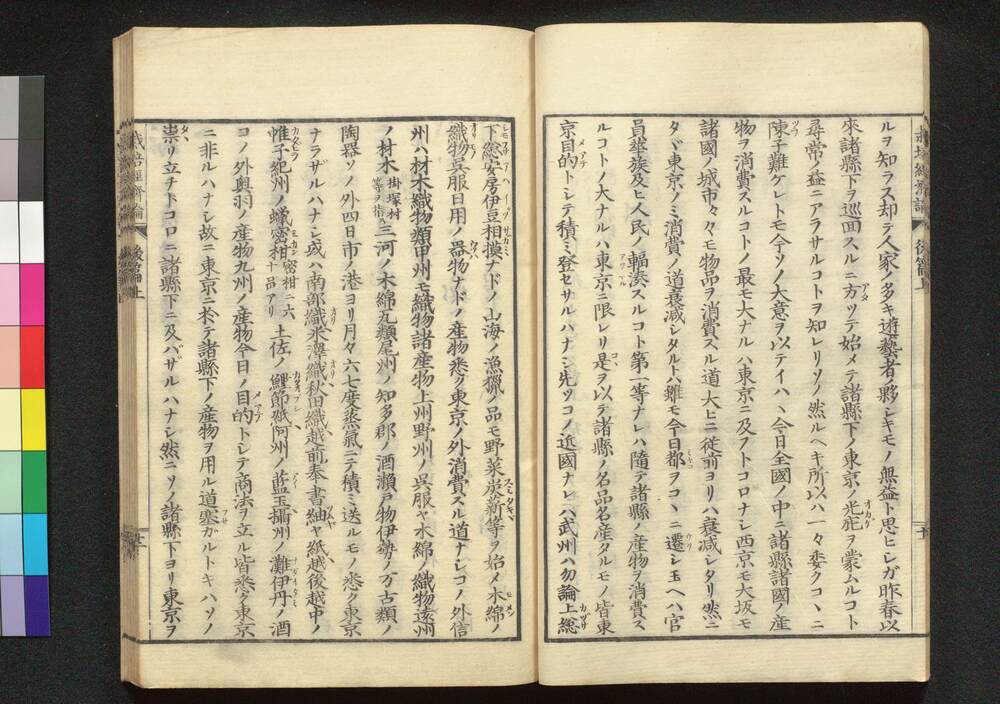 ルヲ知ラス却テ人家ノ多キ遊藝者ノ夥シキモノ無益ト思ヒシガ昨春以
來諸縣下ヲ巡回スルニ方ツテ始メテ諸縣下ノ東京ノ光庇ヲ蒙ムルコト
尋常ノ益ニアラサルコトヲ知レリソノ然ルヘキ所以ハ一々委クコヽニ
陳子難ケレトモ今ソノ大意ヲ以テイハヽ今日全國ノ中ニ諸縣諸國ノ産
物ヲ消費スルコトノ最モ大ナルハ東京ニ及フトコロナシ西京モ大坂モ
諸國ノ城市々々モ物品ヲ消費スル道大ヒニ従前ヨリハ衰減シタリ然ニ
タヾ東京ノミ消費ノ道衰減シタルトハ雖モ今日都ヲコヽニ遷シ玉ヘハ官
員華族及ヒ人民ノ輻湊スルコト第一等ナレハ隨テ諸縣ノ産物ヲ消費ス
ルコトノ大ナルハ東京ニ限レリ是ヲ以テ諸縣ノ名品名産タルモノ皆東
京目的トシテ積ミ登セサルハナシ先ツコノ近國ナレハ武州ハ勿論上總
下總安房伊豆相摸ナドノ山海ノ漁獵ノ品モ野菜炭薪等ヲ始メ木綿ノ
織物呉服日用ノ器物ナドノ産物悉ク東京ノ外消費スル道ナシコノ外信
州ハ材木織物類甲州モ織物諸産物上州野州ノ呉服ヤ木綿ノ織物遠州
ノ材木掛塚村等ヲ指ス三河ノ木綿丸類尾州ノ知多郡ノ酒瀬戸物伊勢ノ万古類ノ
陶器ソノ外四日市ノ港ヨリ月々六七度蒸氣ニテ積ミ送ルモノ悉ク東京
ナラザルハナシ或ハ南部織米澤織秋田織越前奉書紬ヤ紙越後越中ノ
帷子紀州ノ蠟密柑密柑ニ六十品アリ土佐ノ鰹節紙阿州ノ藍玉攝州ノ灘伊丹ノ酒
ヨノ外奥羽ノ産物九州ノ産物今日ノ目的トシテ商法ヲ立ル皆悉ク東京
ニ非ルハナシ故ニ東京ニ於テ諸縣下ノ産物ヲ用ル道塞ガルトキハソノ
祟リ立チトコロニ諸縣下ニ及バザルハナシ然ニソノ諸縣下ヨリ東京ヲ
栽培經濟論 後篇上